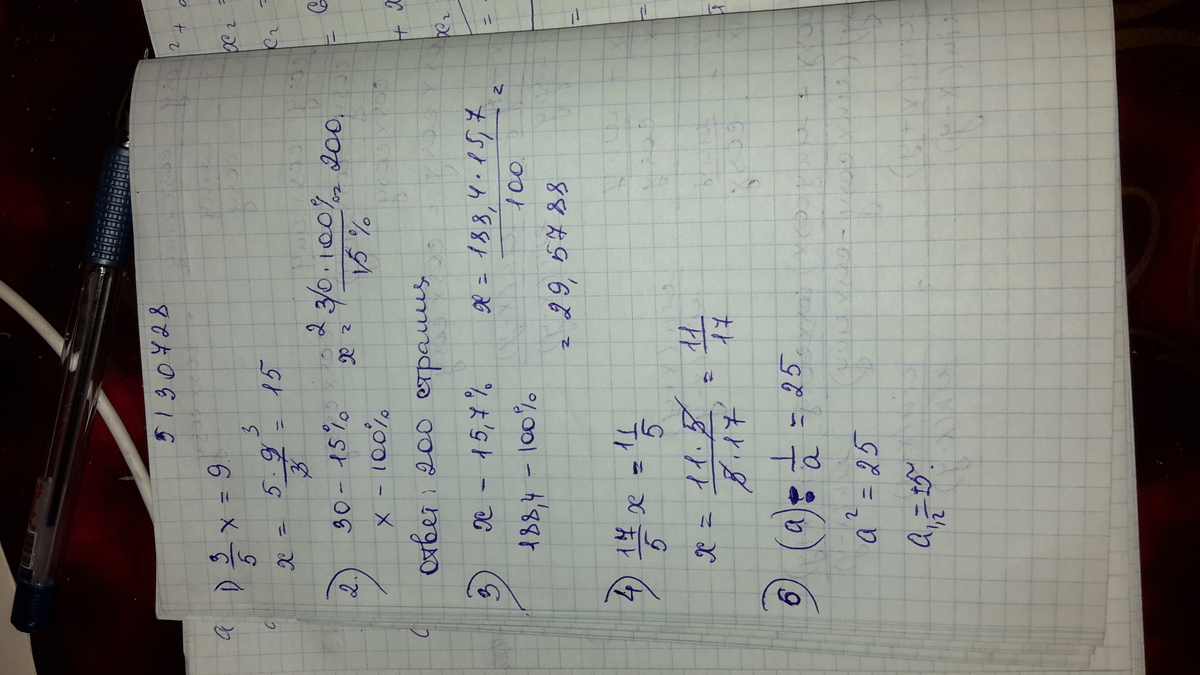 5130728
1) 3/5 x = 9.
x = 5·9 3/3 = 15
2.) 30 – 15%
x – 100%
x = 2 30·100%/15% = 200.
ответ: 200 страниц
3) x – 15,7%
188,4 – 100%
x = 188,4·15,7/100 =
= 29,5788
4) 17/5 x = 11/5
x = 11·5/5·17 = 11/17
6) (a) : 1/a = 25
a² = 25
a₁,₂ = ±5.